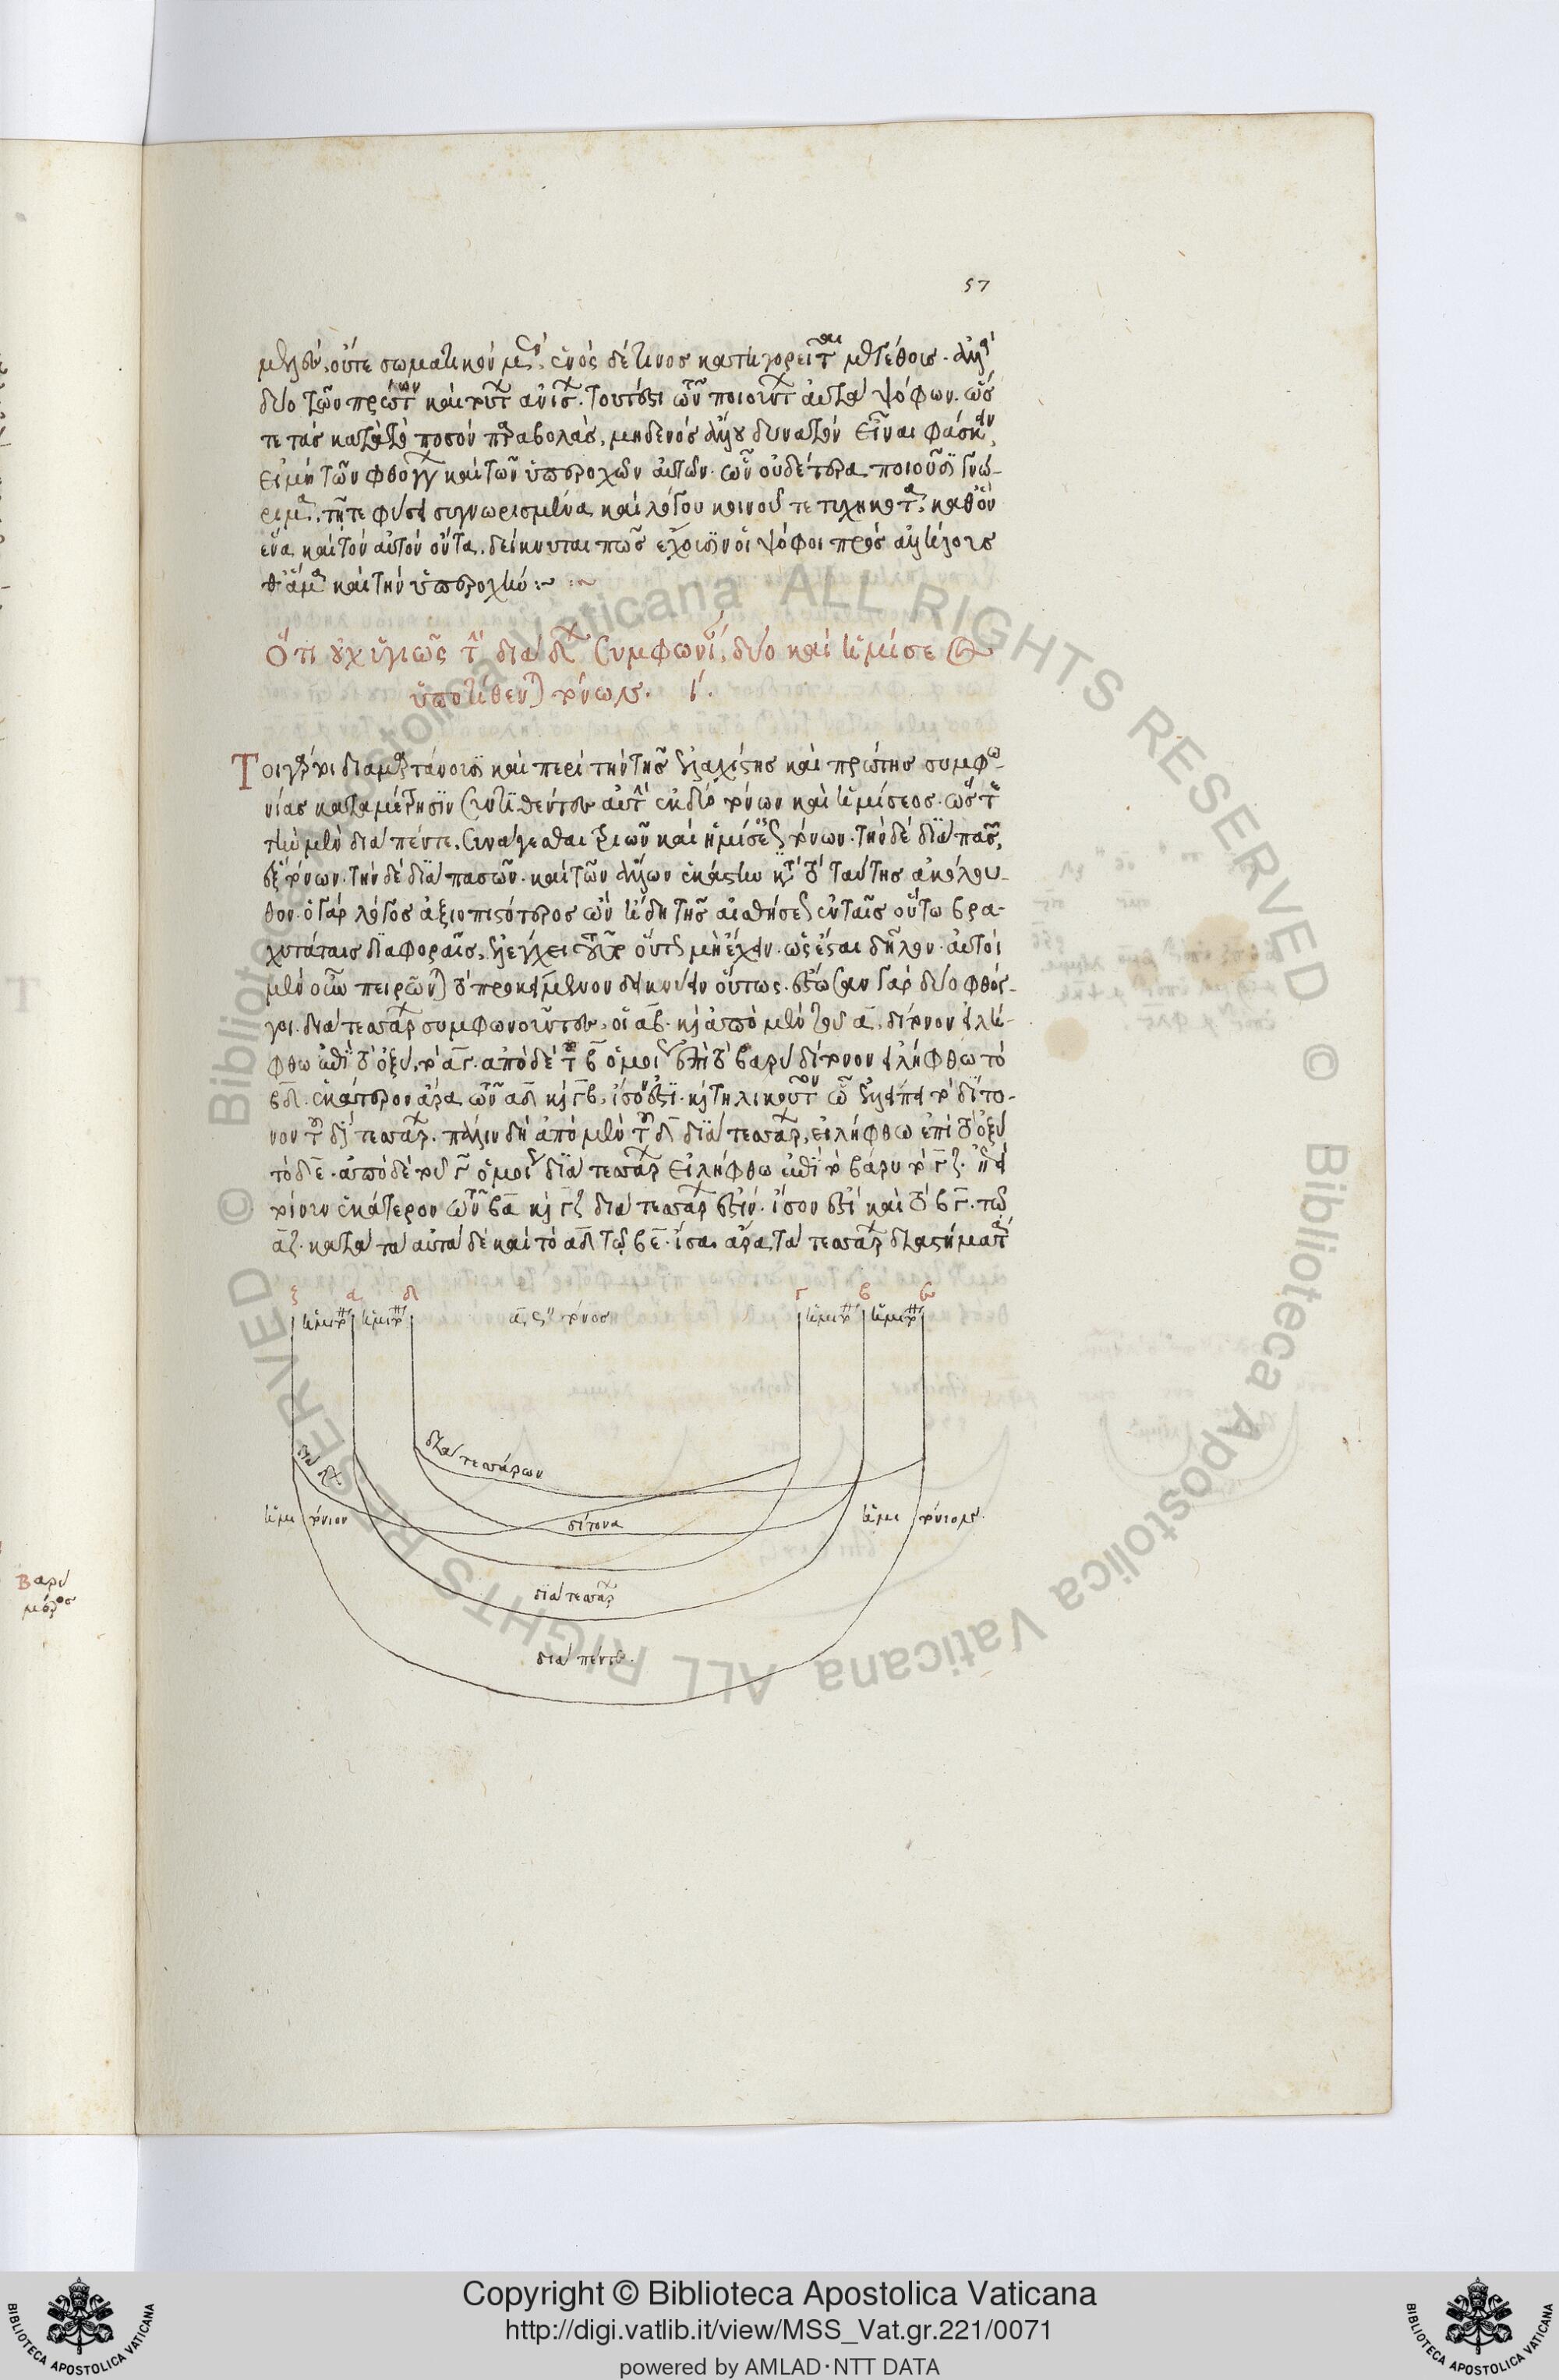 57
μηλον, οὔτε σωματικὸν μέγεθος, ἑνὸς δέ τινος κατηγορεῖται μεγέθους. ἀλλὰ
δύο τῶν πρώτων καὶ τούτων ἀνίσων. τουτέστι τῶν ποιούντων αὐτὰ ψόφων. ὥσ
τε τὰς κατὰ τὸ ποσὸν παραβολὰς, μηδενὸς ἄλλου δυνατὸν εἶναι φάσκειν,
εἰ μὴ τῶν φθόγγων καὶ τῶν ὑπεροχῶν αὐτῶν. ὧν οὐδέτερα ποιοῦσι γνώ-
ριμα, τῇ τε φύσει συγνωρισμένα καὶ λόγου κοινοῦ τετυχηκότα, καθ' ὃν
ἕνα καὶ τὸν αὐτὸν ὄντα, δείκνυται πῶς ἔχουσιν οἱ ψόφοι πρὸς ἀλλήλους
θ' ἅμα καὶ τὴν ὑπεροχήν :~
Ὅτι οὐχ ὑγιῶς τὴν διὰ δ συμφωνίαν, δύο καὶ ἡμίσεος
ὑποτίθενται τόνων. ι.
Τοιγάρτοι διαμαρτάνουσι καὶ περὶ τὴν τῆς ἐλαχίστης καὶ πρώτης συμφω-
νίας καταμέτρησιν συντιθέντες αὐτὴν ἐκ δύο τόνων καὶ ἡμίσεος. ὥστε
τὴν μὲν διὰ πέντε, συνάγεσθαι τριῶν καὶ ἡμίσεος τόνων. τὴν δὲ διὰ πασῶν,
ἓξ τόνων. τὴν δὲ διὰ πασῶν. καὶ τῶν ἄλλων ἑκάστην κατὰ τὸ ταύτης ἀκόλου-
θον. ὁ γὰρ λόγος ἀξιοπιστότερος ὢν ἤδη τῆς αἰσθήσεως ἐν ταῖς οὕτω βρα-
χυτάταις διαφοραῖς, ἐλέγχει τοῦτο οὕτως μὴ ἔχειν. ὡς ἔσται δῆλον. αὐτοὶ
μὲν οὖν πειρῶνται τὸ προκείμενον δεικνύειν οὕτως. ἔστωσαν γὰρ δύο φθόγ-
γοι διὰ τεσσάρων συμφωνοῦντες, οἱ αβ. καὶ ἀπὸ μὲν τοῦ α, δίτονον εἰλή-
φθω ἐπὶ τὸ ὀξύ, τὸ αγ. ἀπὸ δὲ τοῦ β ὁμοίως ἐπὶ τὸ βαρὺ δίτονον εἰλήφθω τὸ
βδ. ἑκάτερον ἄρα τῶν αδ καὶ γβ, ἴσον ἐστὶ. καὶ τηλικοῦτον ᾧ ἐλλείπει τὸ δίτο-
νον τοῦ διὰ τεσσάρων. πάλιν δὴ ἀπὸ μὲν τοῦ δ διὰ τεσσάρων, εἰλήφθω ἐπὶ τὸ ὀξὺ
τὸ δε. ἀπὸ δὲ τοῦ γ ὁμοίως διὰ τεσσάρων εἰλήφθω ἐπὶ τὸ βαρὺ τὸ γζ. ἐπεὶ
τοίνυν ἑκάτερον τῶν βα καὶ γζ διὰ τεσσάρων ἐστίν. ἴσον ἐστὶ καὶ τὸ βγ. τῷ
αζ. κατὰ τὰ αὐτὰ δὲ καὶ τὸ αδ τῷ βε. ἴσα ἄρα τὰ τέσσαρα διαστήματα
ζ α δ γ β ε
ἡμιτ ἡμιτ τόνος ἡμιτ ἡμιτ
διὰ τεσσάρων
ἡμι τόνιον δίτονα ἡμι τόνιον
διὰ τεσσάρ
διὰ πέντε.
Βαρὺ
μέλος
Copyright © Biblioteca Apostolica Vaticana
http://digi.vatlib.it/view/MSS_Vat.gr.221/0071
powered by AMLAD·NTT DATA